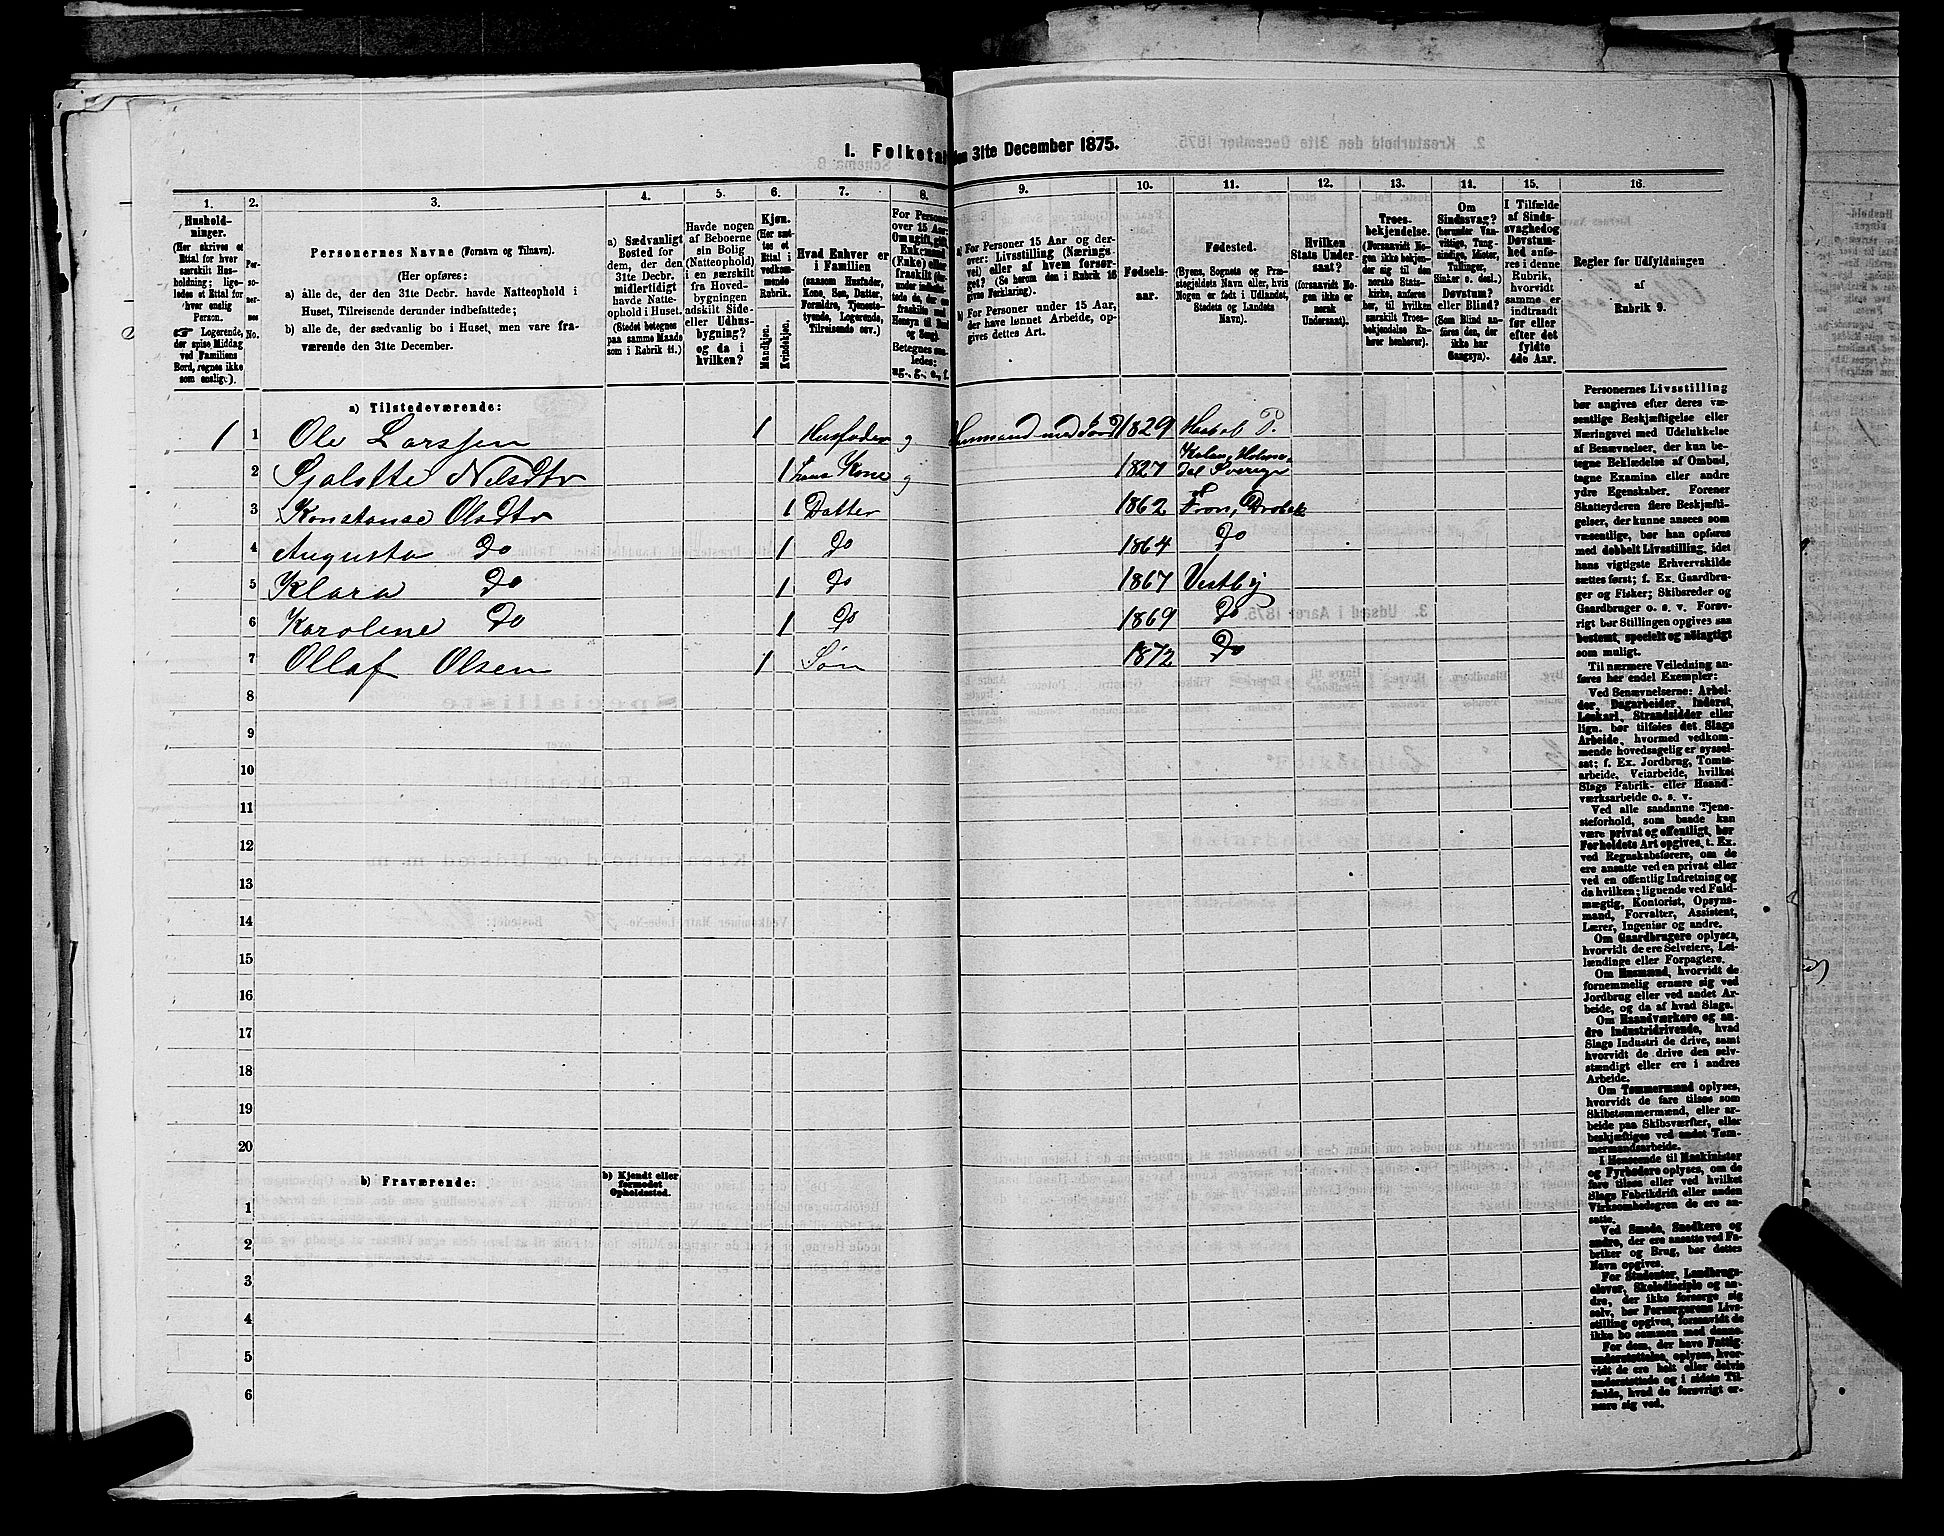 1. Folketal den 31te December 1875.
1. 2. 3. 4. 5. 6. 7. 8. 9. 10. 11. 12. 13. 14. 15. 16.
Hushold-
ninger.
(Her skrives et
Ettal for hver
særskilt Hus-
holdning; lige-
ledes et Ettal for
hver enslig
Person.
Logerende,
der spise Middag
ved Familiens
Bord, regnes ikke
som enslige.).
Per-
so-
ner-
nes
No.
Personernes Navne (Fornavn og Tilnavn).
(Her opføres:
a) alle de, der den 31te Decbr. havde Natteophold i
Huset, Tilreisende derunder indbefattede;
b) alle de, der sædvanlig bo i Huset, men vare fra-
værende den 31te December.
a) Sædvanligt
Bosted for
dem, der den
31te Decbr.
midlertidigt
havde Natte-
ophold i Huset.
(Stedet betegnes
paa samme Maade
som i Rubrik 11.)
Havde nogen
af Beboerne
sin Bolig
(Natteophold)
i en særskilt
fra Hoved-
bygningen
adskilt Side-
eller Udhus-
bygning?
og da i
hvilken?
Kjøn.
(Her sæt-
tes et
Ettal i
vedkom-
mende
Rubrik.
Mandkjøn.
Kvindekjøn.
Hvad Enhver er
i Familien
(saasom Husfader,
Kone, Søn, Datter,
Forældre, Tjeneste-
tyende, Logerende,
Tilreisende osv.)
For Personer
over 15 Aar:
Om ugift, gift,
Enkemand
(Enke) eller
fraskilt
Betegnes saa-
ledes:
ug., g., e., f.
a) For Personer 15 Aar og der-
over: Livsstilling (Nærings-
vei) eller af hvem forsør-
get? (Se herom den i Rubrik 16
givne Forklaring).
b) For Personer under 15 Aar,
der have lønnet Arbeide, op-
gives dettes Art.
Fødsels-
aar.
Fødested.
(Byens, Sognets og Præ-
stegjeldets Navn, eller, hvis
Nogen er født i Udlandet,
Stedets og Landets
Navn).
Hvilken
Stats Under-
saat?
(forsaavidt No-
gen ikke er
norsk
Undersaat).
Troes-
bekjendelse.
(Forsaavidt No-
gen ikke bekjen-
der sig til den
norske Stats-
kirke, anføres
her, til hvilken
særskilt Troes-
bekjendelse En-
hver henhører).
Om
Sindssvag?
(herunder Van-
vittige, Tung-
sindige, Idioter,
Tullinger,
Sinker o. desl.)
Døvstum?
eller Blind?
(Som Blind an-
føres den, der
ikke har
Gangsyn).
I Tilfælde
af Sinds-
svaghed og
Døvstum-
hed anfø-
res i denne
Rubrik,
hvorvidt
samme er
indtraadt
før eller
efter det
fyldte
4de Aar.
Regler for Udfyldningen
af
Rubrik 9.
a) Tilstedeværende:
1 1 Ole Larssen 1 Husfader g Husmand med Jord 1829 P.
2 Sjalotte Nilsdtr 1 hans Kone g 1827 Sverige
3 Konstanse Olsdtr 1 Datter 1862 Fron, Drøbak
4 Augusta Do 1 Do 1864 Do
5 Klara Do 1 Do 1867 Vestby
6 Karoline Do 1 Do 1869 Do
7 Ollaf Olsen 1 Søn 1872 Do
8
9
10
11
12
13
14
15
16
17
18
19
20
b) Fraværende:
b) Kjendt eller
formodet
Opholdssted.
1
2
3
4
5
6
Personernes Livsstilling
bør angives efter deres væ-
sentlige Beskjæftigelse eller
Næringsvei med Udelukkelse
af Benævnelser, der kun be-
tegne Beklædelse af Ombud,
tagne Examina eller andre
ydre Egenskaber. Forener
Skatteyderen flere Beskjæfti-
gelser, der kunne ansees som
væsentlige, bør han opføres
med dobbelt Livsstilling, idet
hans vigtigste Erhvervskilde
sættes først; f. Ex. Gaardbru-
ger og Fisker; Skibsreder og
Gaardbruger o. s. v. Forøv-
rigt bør Stillingen opgives saa
bestemt, specielt og nøiagtigt
som muligt.
Til nærmere Veiledning an-
føres her endel Exempler:
Ved Benævnelserne: Arbei-
der, Dagarbeider, Inderst,
Løskarl, Strandsidder eller
lign. bør tilføies det Slags
Arbeide, hvormed vedkom-
mende hovedsagelig er syssel-
sat; f. Ex. Jordbrug, Tomte-
arbeide, Veiarbeide, hvilket
Slags Fabrik- eller Haand-
værksarbeide o. s. v.
Ved alle saadanne Tjene-
steforhold, som baade kan
være privat og offentligt, bør
Forholdets Art opgives, t. Ex.
ved Regnskabsførere, om de
ere ansatte ved en privat eller
ved en offentlig Indretning og
da hvilken; lignende ved Fuld-
mægtig, Kontorist, Opsyns-
mand, Forvalter, Assistent,
Lærer, Ingeniør og andre.
Om Gaardbrugere oplyses,
hvorvidt de ere Selveiere, Lei-
lændinge eller Forpagtere.
Om Husmænd, hvorvidt de
fornemmelig ernære sig ved
Jordbrug eller ved andet Ar-
beide, og da af hvad Slags.
Om Haandværkere og an-
dre Industridrivende, hvad
Slags Industri de drive, samt
hvorvidt de drive den selv-
stændigt eller ere i andres
Arbeide.
Om Tømmermænd oplyses,
hvorvidt de fare tilsøs som
Skibstømmermænd, eller ar-
beide paa Skibsværfter, eller
beskjæftiges ved andet Tøm-
mermandsarbeide.
I Henseende til Maskinister
og Fyrbødere oplyses, om de
fare tilsøs eller ved hvilket
Slags Fabrikdrift eller anden
Virksomhedsgren de ere an-
satte.
Ved Smede, Snedkere og
andre, der ere ansatte ved Fa-
briker og Brug, bør dettes
Navn opgives.
For Studenter, Landbrugs-
elever, Skoledisciple og an-
dre, der ikke forsørge sig
selv, bør Forsørgerens Livs-
stilling opgives, forsaavidt de
ikke bo sammen med denne.
For dem, der have Fattig-
understøttelse, oplyses, hvor-
vidt de ere helt eller delvis
understøttede og i sidste Til-
fælde, hvad de forøvrigt er-
nære sig ved.